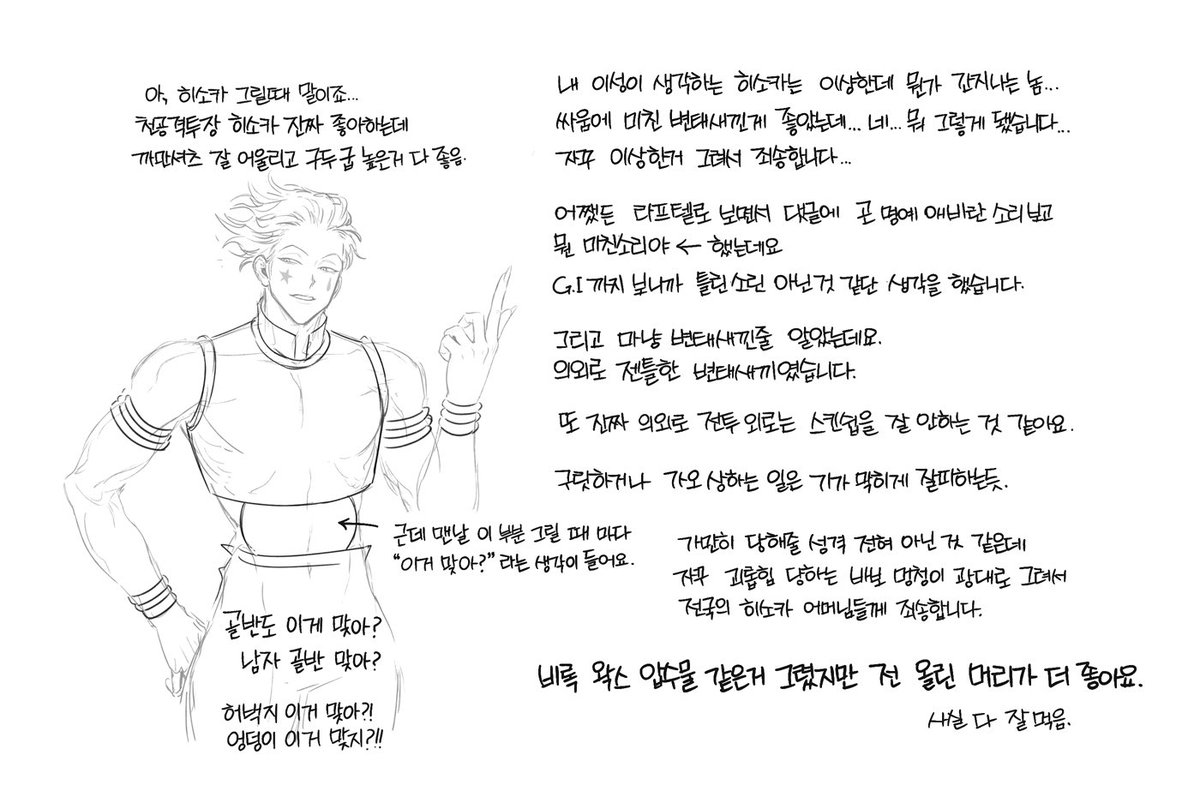 아, 히소카 그릴때 말이죠...
천공격투장 히소카 진짜 좋아하는데
까만셔츠 잘 어울리고 구두굽 높은거 다 좋음.
내 이성이 생각하는 히소카는 이상한데 뭔가 간지나는 놈...
싸움에 미친 변태새낀게 좋았는데... 네... 뭐 그렇게 됐습니다...
자꾸 이상한거 그려서 죄송합니다...
어쨌든 라프텔로 보면서 댓글에 곤 명예 애비란 소리 보고
뭔 미친소리야 ← 했는데요
G.I 까지 보니까 틀린소린 아닌것 같단 생각을 했습니다.
그리고 마냥 변태새낀줄 알았는데요.
의외로 젠틀한 변태새끼였습니다.
또 진짜 의외로 전투 외로는 스킨쉽을 잘 안하는 것 같아요.
구릿하거나 가오 상하는 일은 기가 막히게 잘피하는듯.
근데 맨날 이 부분 그릴 때 마다
"이거 맞아?" 라는 생각이 들어요.
가만히 당해줄 성격 전혀 아닌 것 같은데
자꾸 괴롭힘 당하는 바보 멍청이 광대로 그려서
전국의 히소카 어머님들께 죄송합니다.
골반도 이게 맞아?
남자 골반 맞아?
허벅지 이거 맞아?!
엉덩이 이거 맞지?!!
비록 왁스 압수물 같은거 그렸지만 전 올린 머리가 더 좋아요.
사실 다 잘 먹음.